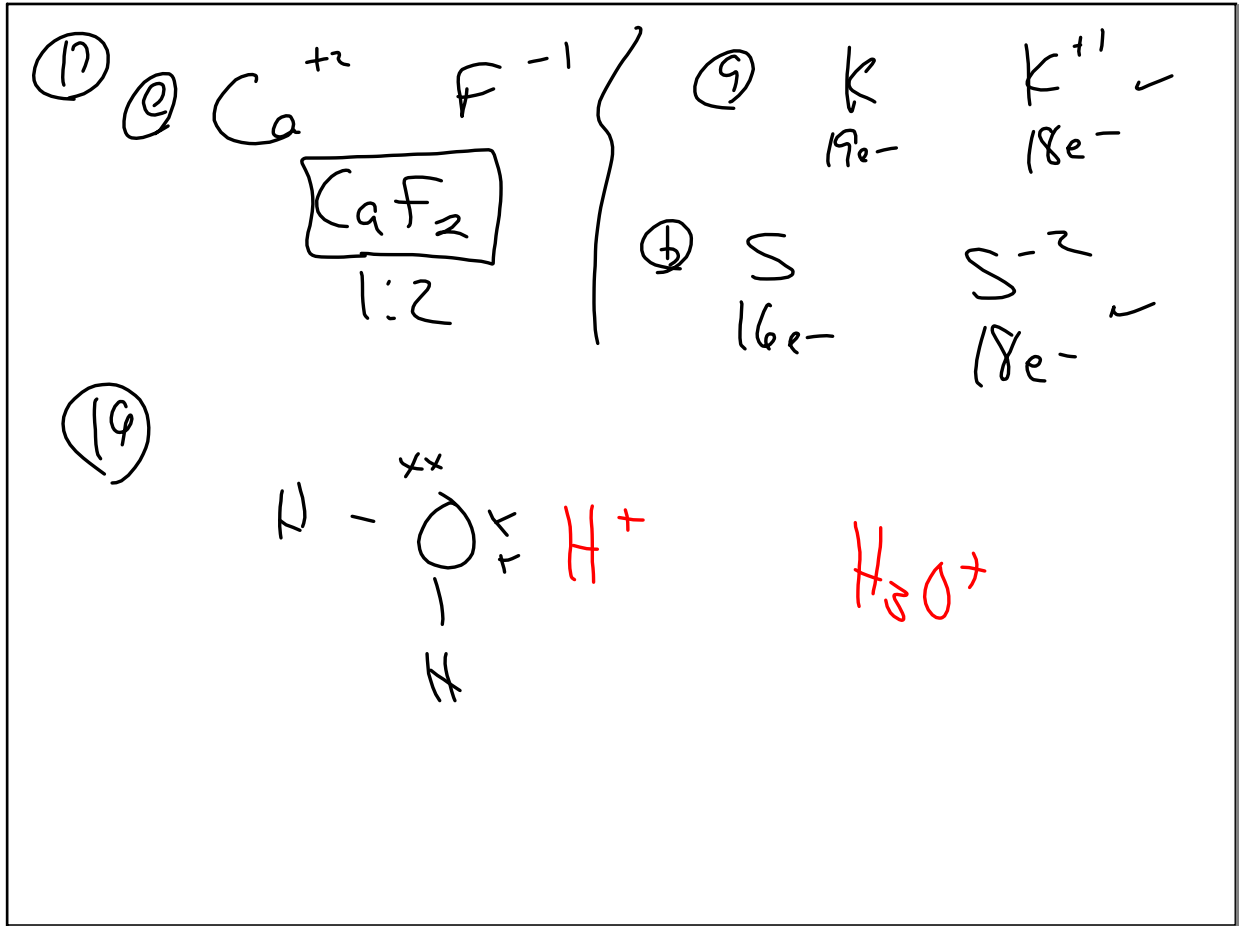 17 e Ca +2 F -1
CaF2
1:2
a K K +1 ✓
19e- 18e-
b S S -2
16e- 18e- ✓
19
xx
H - O xx H+ H3O+
|
H